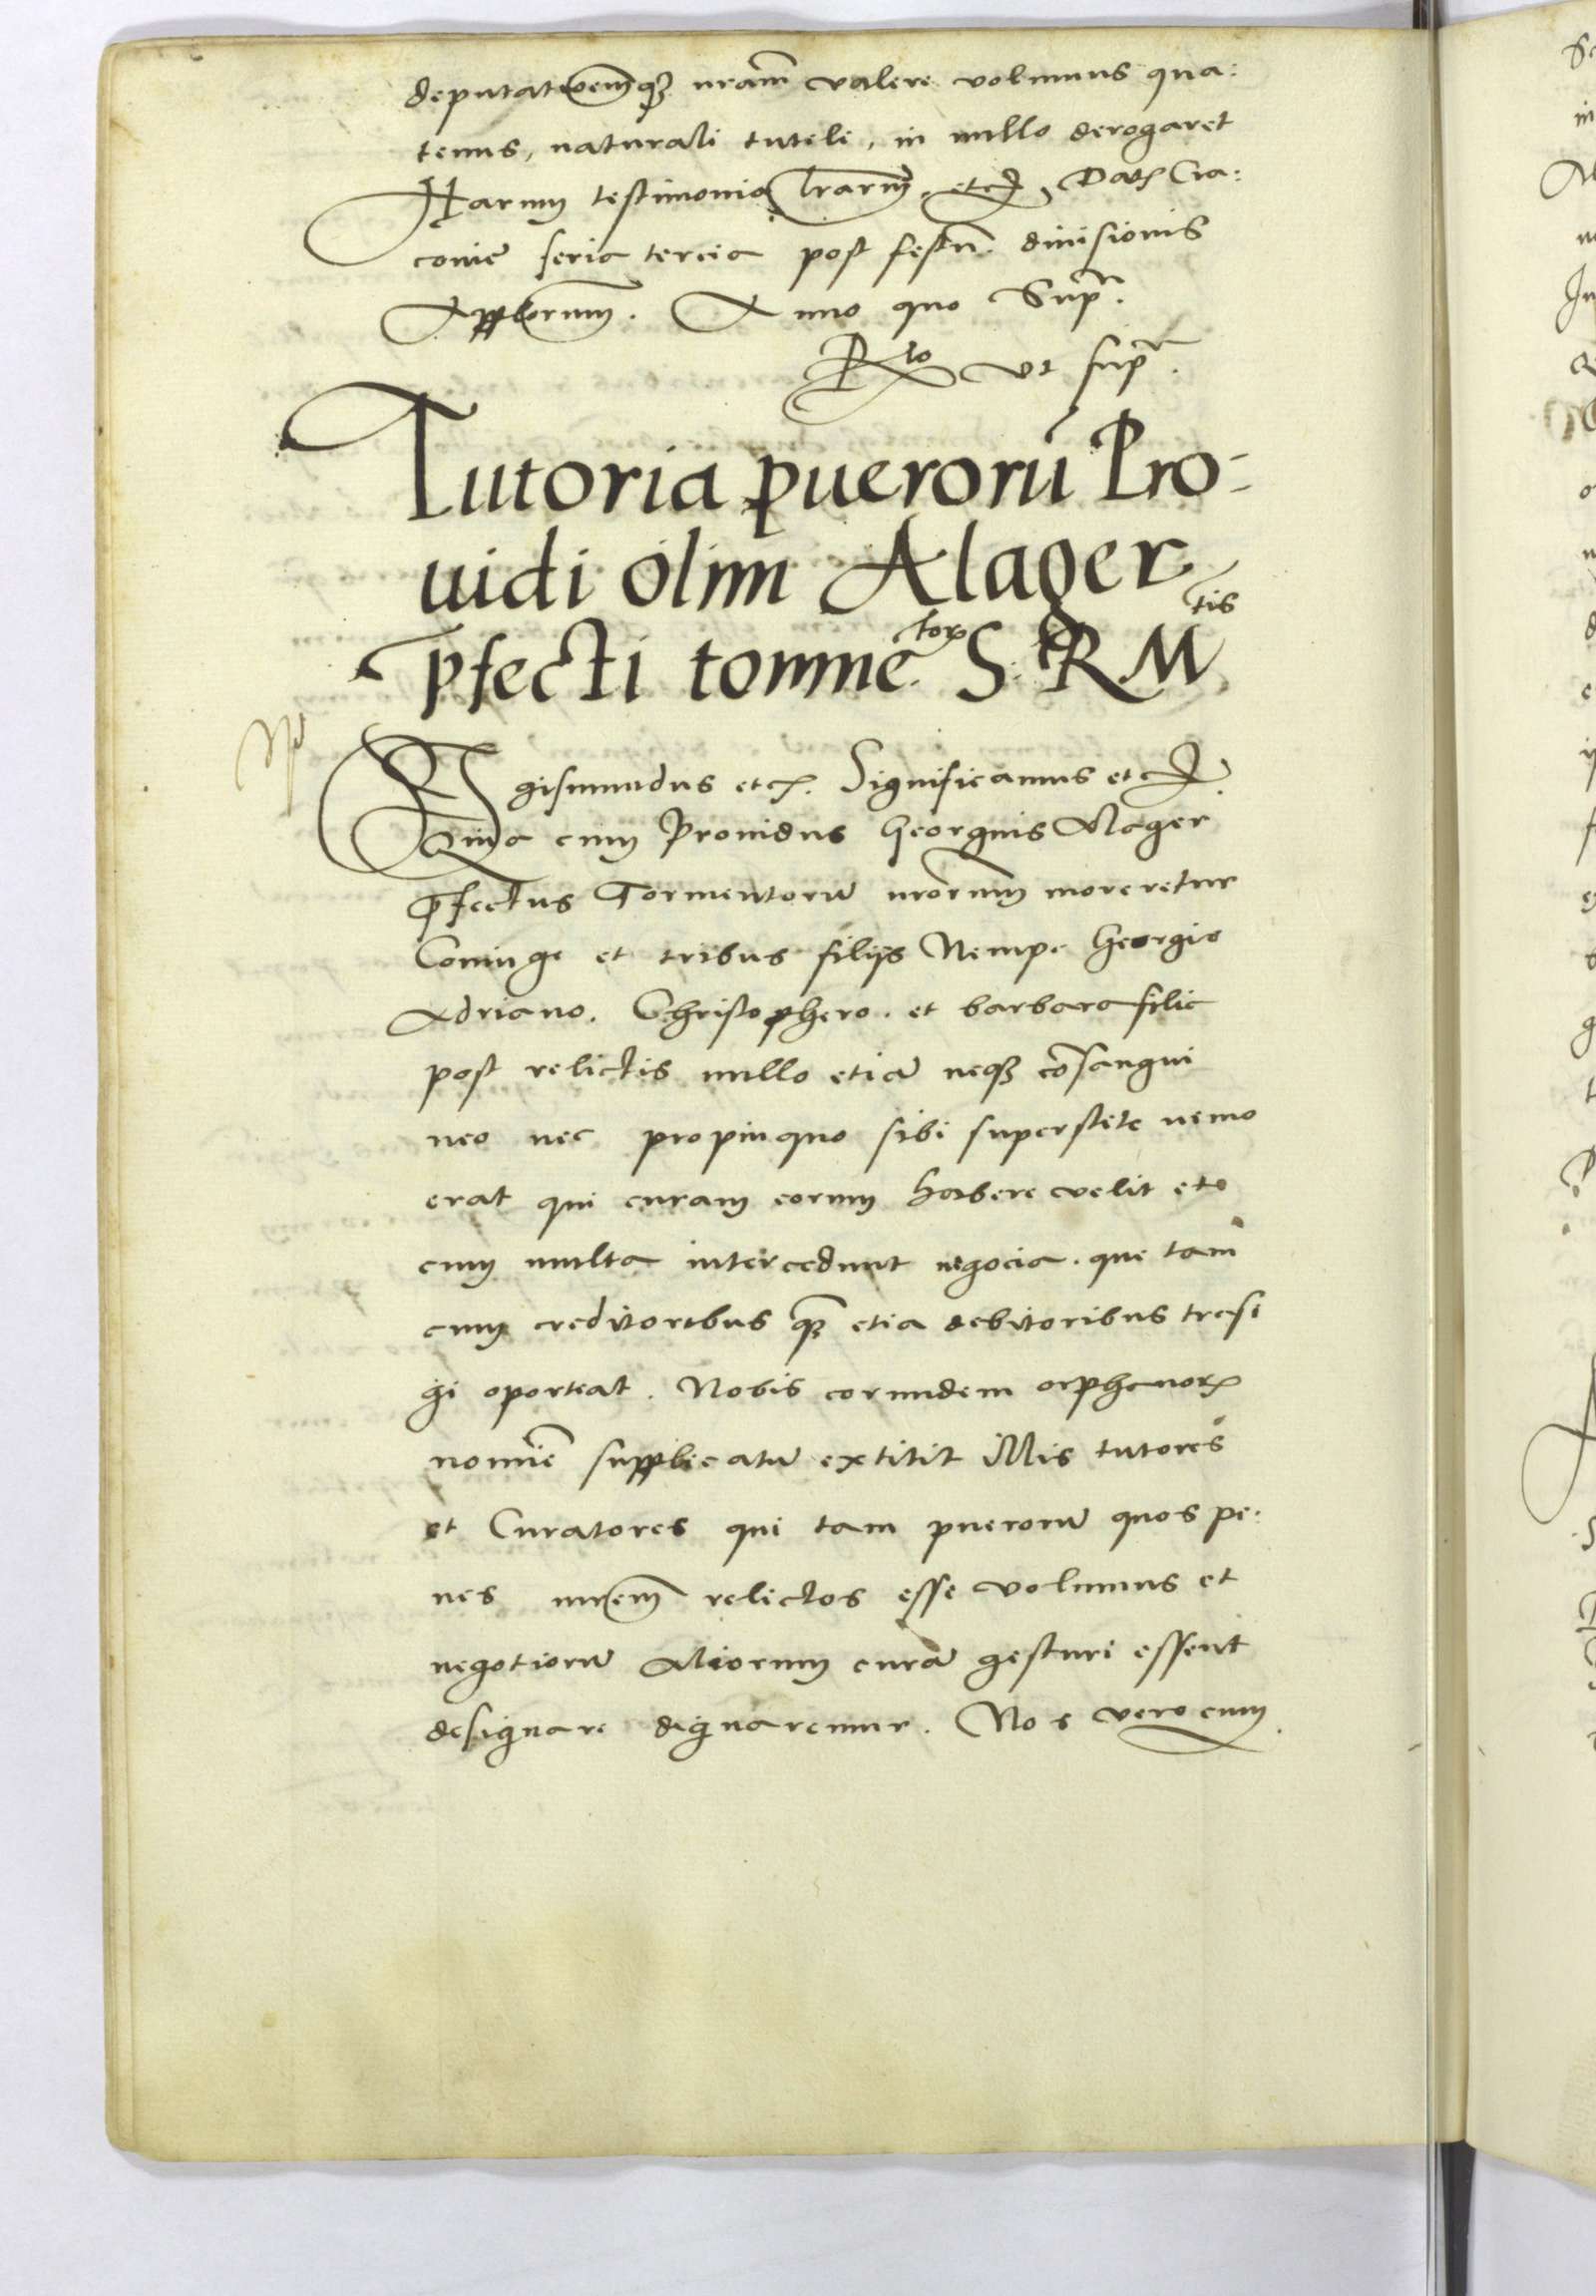 deputationemq₃ nram̄ valere volumus qua:
tenus, naturali tutele, in nullo derogaret
Harum testimonio lrarum. etc̃, Dat̃ Cra:
couie feria tercia post festū diuisionis
Applorum. Anno quo Supr.
Rᵗᵒ vt supr.
Tutoria puerorū Pro-
uidi olim Alager
p̄fecti tomne.ᵗᵒʳ S. R Mᵗⁱˢ
Sigismundus etc̃. Significamus etc̃.
Quia cum Prouidus Georgius Alager
P̄fectus Tormentorū nrorum moreretur
Coniuge et tribus filijs Nempe Georgio
Adriano. Christophero. et barbara filia
post relictis nullo etiā neq₃ cōsangui
neo nec propinquo sibi superstite nemo
erat qui curam eorum habere velit et
cum multa intercedunt negocia. que tam
cum creditoribus q₃ etia debitoribus trasi
gi oporteat. Nobis eorundem orphanor̃
nomīe supplicatū extitit illis tutores
et Curatores qui tam puerorū quos pe:
nes mrem relictos esse volumus et
negotiorū aliorum curā gesturi essent
designare dignaremur. Nos vero cum